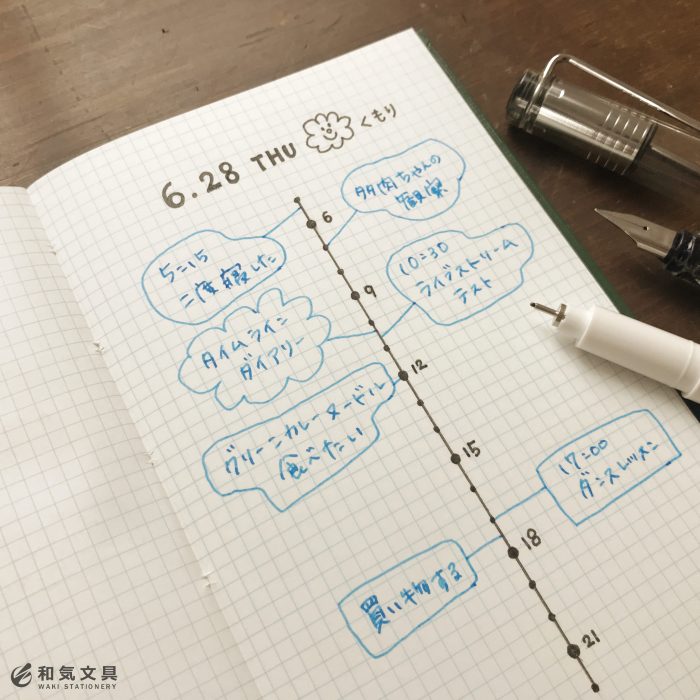 6.28 THU くもり
多肉ちゃんの
観察
6
5:15
二度寝した
10:30
ライブストリーム
テスト
9
タイムライン
ダイアリー
12
グリーンカレーヌードル
食べたい
15
17:00
ダンスレッスン
18
買い物する
21
和気文具
WAKI STATIONERY